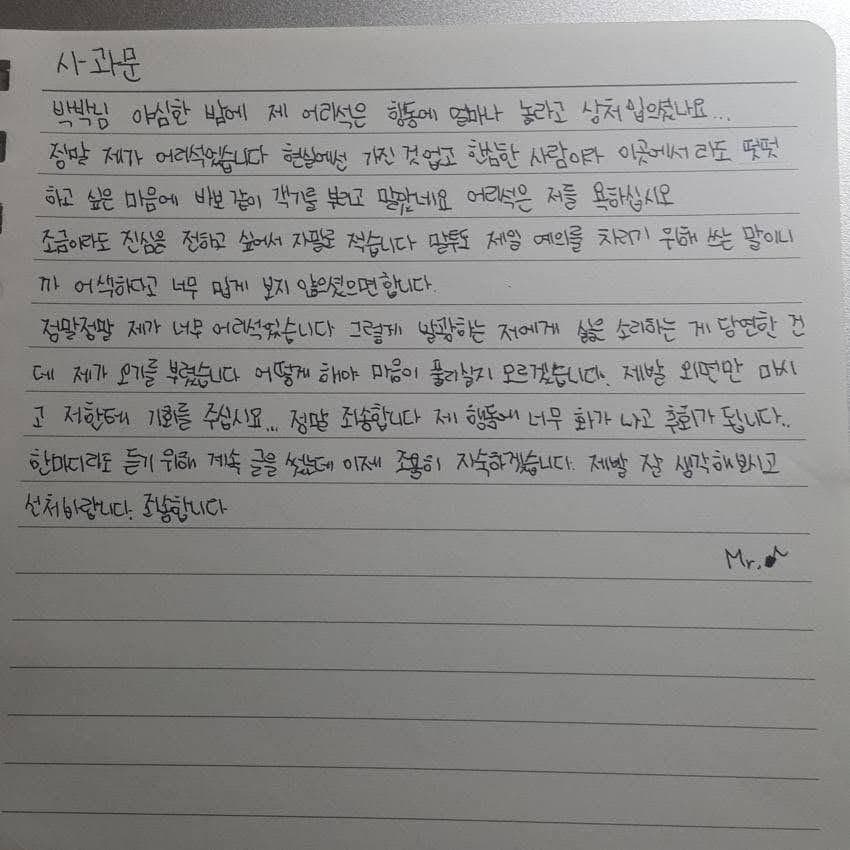 사과문
박박님 야심한 밤에 제 어리석은 행동에 얼마나 놀라고 상처입으셨나요...
정말 제가 어리석었습니다 현실에선 가진 것 없고 한심한 사람이라 이곳에서라도 떳떳
하고 싶은 마음에 바보같이 객기를 부리고 말았네요 어리석은 저를 욕하십시오
조금이라도 진심을 전하고 싶어서 자필로 적습니다 말투도 제일 예의를 차리기 위해 쓰는 말이니
까 어색하다고 너무 밉게 보지 않으셨으면합니다.
정말정말 제가 너무 어리석었습니다 그렇게 발광하는 저에게 싫은 소리하는 게 당연한 건
데 제가 오기를 부렸습니다 어떻게 해야 마음이 풀리실지 모르겠습니다. 제발 외면만 마시
고 저한테 기회를 주십시요... 정말 죄송합니다 제 행동에 너무 화가 나고 후회가 됩니다..
한마디라도 듣기 위해 계속 글을 썼는데 이제 조용히 자숙하겠습니다. 제발 잘 생각해보시고
선처바랍니다. 죄송합니다
Mr.